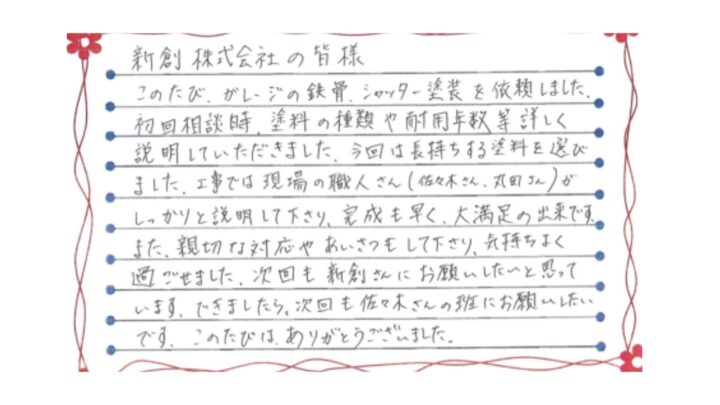 新創株式会社の皆様
このたび、ガレージの鉄骨、シャッター塗装を依頼しました。
初回相談時、塗料の種類や耐用年数等詳しく
説明していただきました。今回は長持ちする塗料を選び
ました。工事では現場の職人さん(佐々木さん、丸田さん)が
しっかりと説明して下さり、完成も早く、大満足の出来です。
また、親切な対応やあいさつもして下さり、気持ちよく
過ごせました。次回も新創さんにお願いしたいと思って
います。できましたら、次回も佐々木さんの班にお願いしたい
です。このたびは、ありがとうございました。